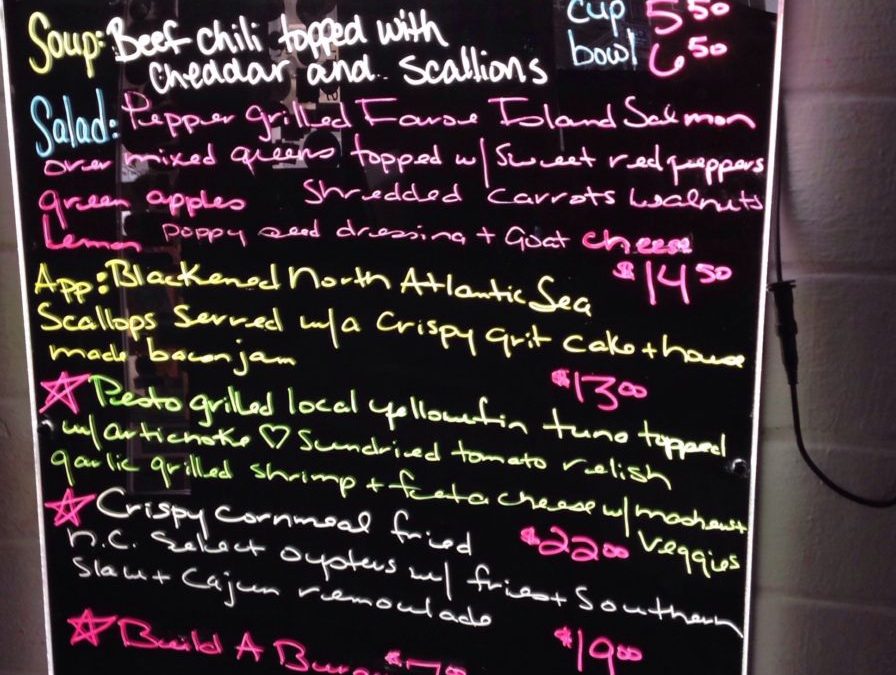 Soup: Beef chili topped with cup 5 50
cheddar and scallions bowl 6 50
Salad: Pepper grilled Faroe Island Salmon
over mixed greens topped w/ Sweet red peppers
green apples Shredded carrots walnuts
Lemon poppy seed dressing + Goat cheese
$14 50
App: Blackened North Atlantic Sea
Scallops Served w/a Crispy grit cake + house
made bacon jam
$13 00
☆ Pesto grilled local yellowfin tuna topped
w/ artichoke ♡ Sundried tomato relish
garlic grilled shrimp + feta cheese w/ mashers +
veggies
$22 00
☆ Crispy cornmeal fried
n.c. Select oysters w/ fries + Southern
Slaw + Cajun remoulade
$19 00
☆ Build A